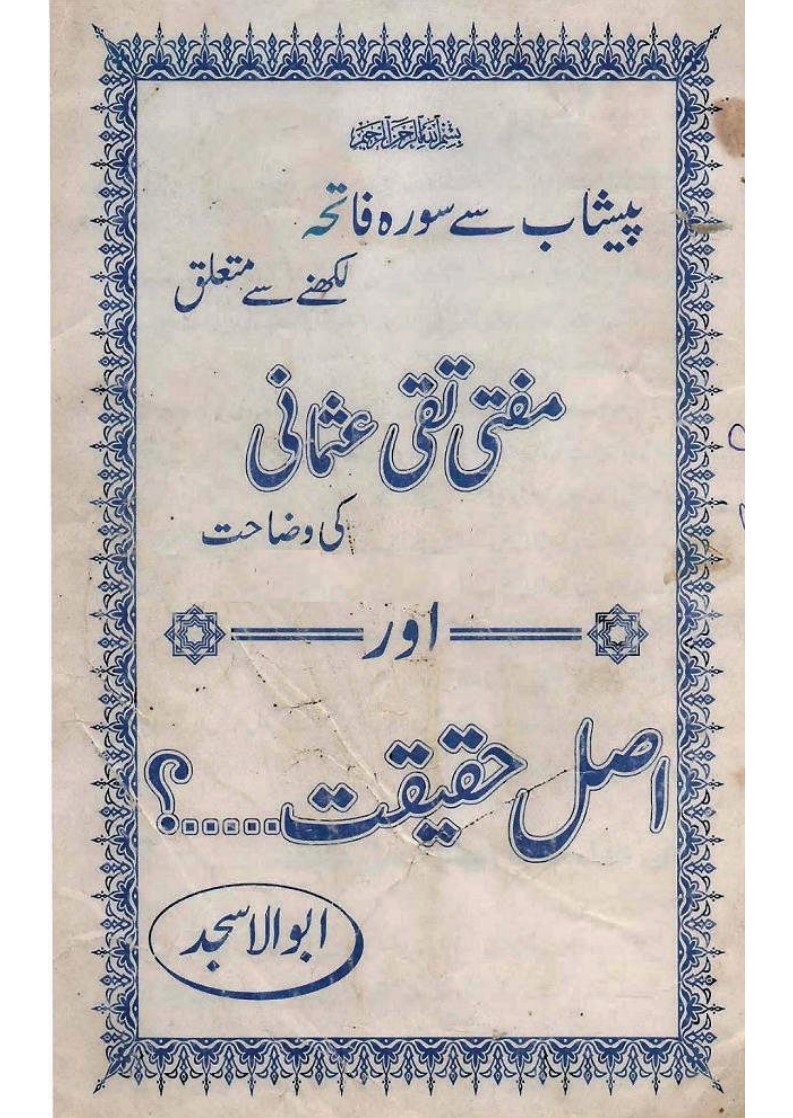 بسم اللہ الرحمن الرحیم
پیشاب سے سورہ فاتحہ
لکھنے سے متعلق
مفتی تقی عثمانی
کی وضاحت
اور
اصل حقیقت.....؟
ابوالاسجد